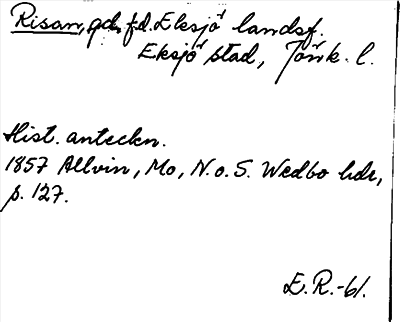 Risan, gd, f.d. Eksjö landsf.
Eksjö stad, Jönk. l.
Hist. anteckn.
1857 Allvin, Mo, N. o. S. Wedbo hdr,
s. 127.
E. R.-61.